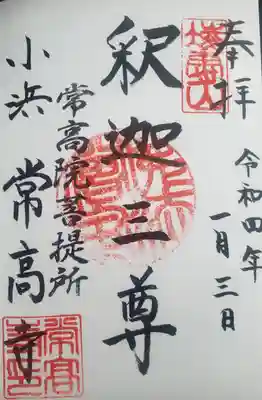 奉拝
令和四年
一月三日
釈迦三尊
常高院菩提所
小浜 常高寺